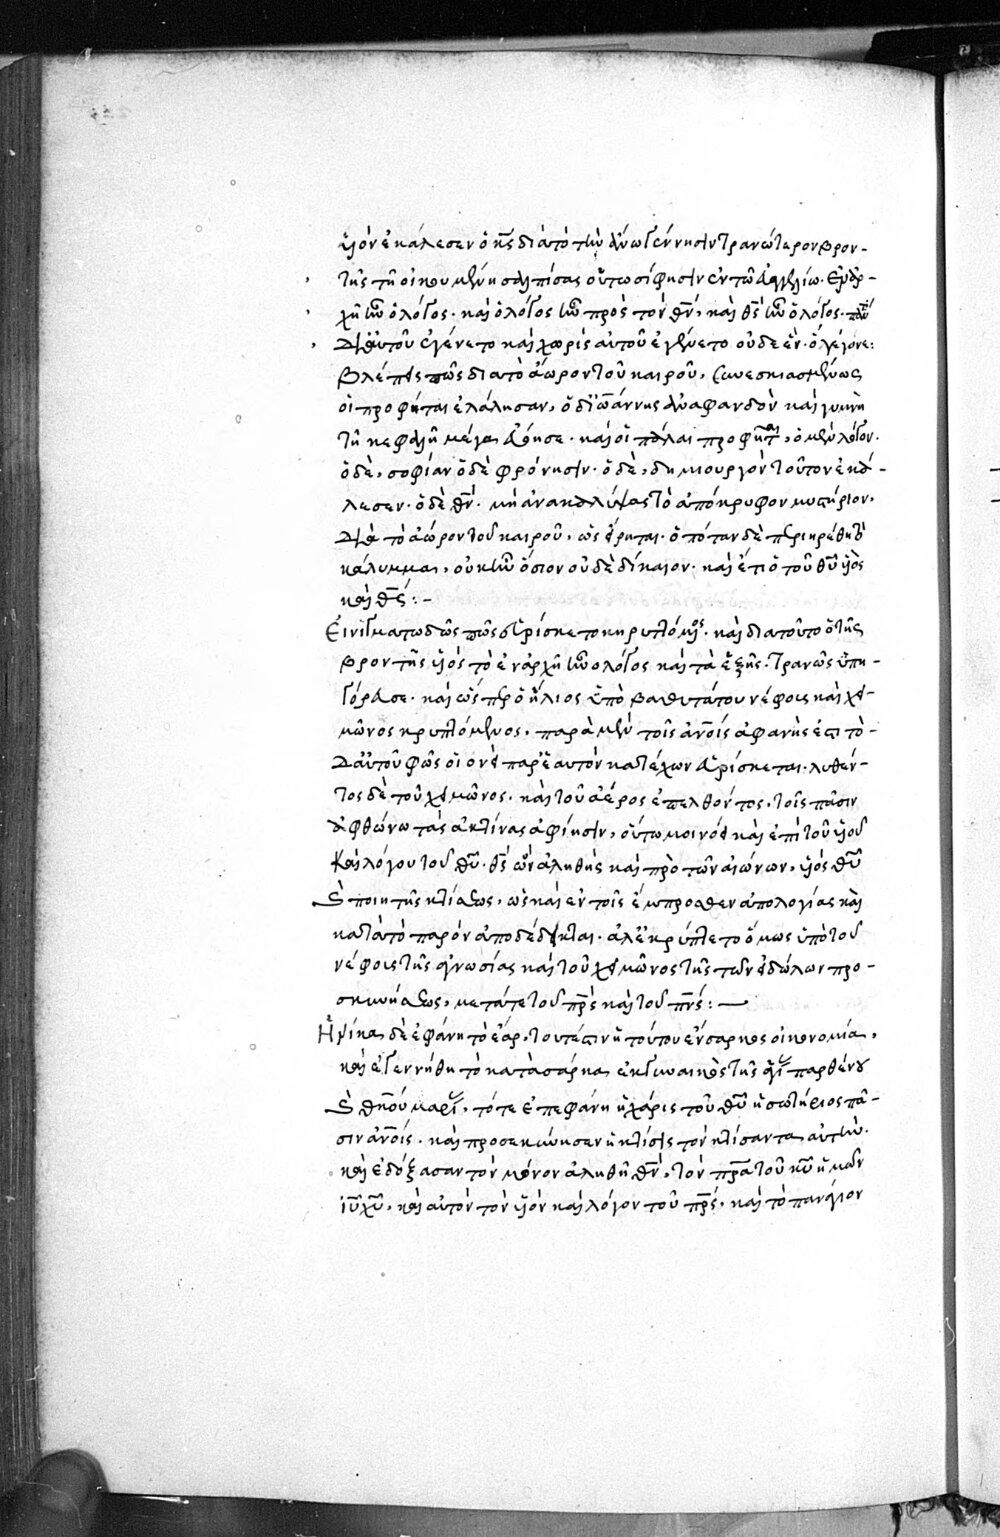 υἱὸν ἐκάλεσεν ὁ κς διὰ τὸ τὴν ἄνω γέννησιν τρανώτερον βρον-
τῆς τῇ οἰκουμένῃ σαλπίσας οὕτωσί φησιν ἐν τῶ εὐαγγελίω. ἐν ἀρ-
χῇ ἦν ὁ λόγος. καὶ ὁ λόγος ἦν πρὸς τὸν θν, καὶ θς ἦν ὁ λόγος. πάντα
δι' αὐτοῦ ἐγένετο καὶ χωρὶς αὐτοῦ ἐγένετο οὐδὲ ἓν. ὃ γέγονε:
βλέπεις πῶς διὰ τὸ ἄωρον τοῦ καιροῦ, συνεσκιασμένως
οἱ προφῆται ἐλάλησαν, ὁ δὲ ἰωάννης ἀναφανδὸν καὶ γυμνῇ
τῇ κεφαλῇ μέγα ἐβόησε. καὶ οἱ πάλαι προφῆται, ὁ μὲν λόγον.
ὁ δὲ, σοφίαν ὁ δὲ φρόνησιν. ὁ δὲ, δημιουργὸν τοῦτον ἐκά-
λεσεν. ὁ δὲ θν. μὴ ἀνακαλύψας τὸ ἀπόκρυφον μυστήριον,
διὰ τὸ ἄωρον τοῦ καιροῦ, ὡς εἴρηται. ὁπόταν δὲ περιηρέθη τὸ
κάλυμμα, οὐκ ἦν ὅσιον οὐδὲ δίκαιον. καὶ ἔτι ὁ τοῦ θυ υἱὸς
καὶ θς:-
Εἰνιγματωδῶς πῶς εὑρίσκετο κηρυττόμενος. καὶ διατοῦτο ὁ τῆς
βροντῆς υἱὸς τὸ ἐν ἀρχῇ ἦν ὁ λόγος καὶ τὰ ἑξῆς. τρανῶς ὑπη-
γόρευσε. καὶ ὥσπερ ὁ ἥλιος ὑπὸ βαθυτάτου νέφους καὶ χει-
μῶνος κρυπτόμενος, παρὰ μὲν τοῖς ἀνοις ἀφανὴς ἐστι τὸ-
δ' αὐτοῦ φῶς οἱονεὶ παρ' ἑαυτὸν κατέχων εὑρίσκεται. λυθέν-
τος δὲ τοῦ χειμῶνος. καὶ τοῦ ἀέρος ἐπελθόντος, τοῖς πᾶσιν
ἀφθόνω τὰς ἀκτίνας ἀφίησιν, οὕτω μοι νόει καὶ ἐπὶ τοῦ υἱοῦ
καὶ λόγου τοῦ θυ. θς ὢν ἀληθὴς καὶ πρὸ τῶν αἰώνων, υἱός θυ
καὶ ποιητὴς κτίσεως, ὡς καὶ ἐν τοῖς ἔμπροσθεν ἀπολογίας καὶ
κατὰ τὸ παρὸν ἀποδέδεικται. ἀλ' ἐκρύπτετο ὅμως ὑπὸ τοῦ
νέφους τῆς ἀγνωσίας καὶ τοῦ χειμῶνος τῆς τῶν εἰδώλων προ-
σκυνήσεως, μετά τε τοῦ πρς καὶ τοῦ πνς:-
Ἡνίκα δὲ ἐφάνη τὸ ἔαρ, τουτέστιν ἡ τούτου ἔνσαρκος οἰκονομία,
καὶ ἐγεννήθη τὸ κατὰ σάρκα ἐκ γυναικὸς τῆς ἁγίας παρθένου
καὶ θκου μαρίας, τότε ἐπεφάνη ἡ χάρις τοῦ θυ ἡ σωτήριος πᾶ-
σιν ἀνοις. καὶ προσεκύνησεν ἡ κτίσις τὸν κτίσαντα αὐτὴν.
καὶ ἐδόξασαν τὸν μόνον ἀληθῆ θν, τὸν πρα τοῦ κυ ἡμῶν
ιυ χυ, καὶ αὐτὸν τὸν υἱὸν καὶ λόγον τοῦ πρς, καὶ τὸ πανάγιον